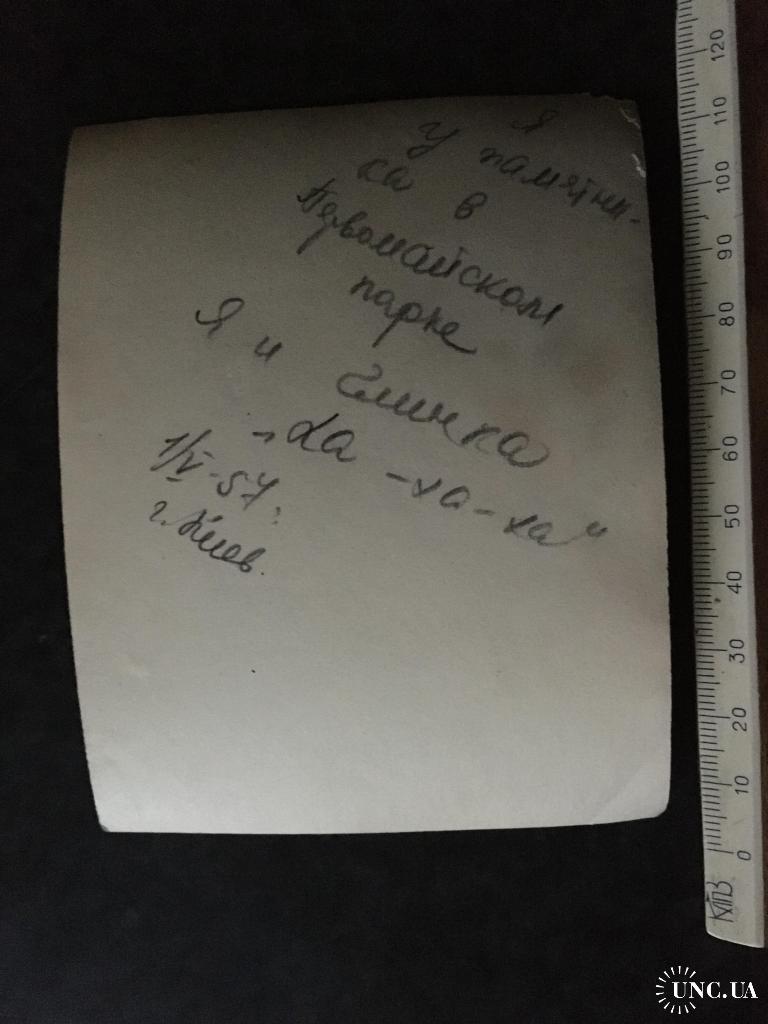 Я
у памятни-
ка в
Первомайском
парке
Я и Глинка
„Ха-ха-ха"
1/V-57.
г. Киев.
120
110
100
90
80
70
60
50
40
30
20
10
0
UNC.UA